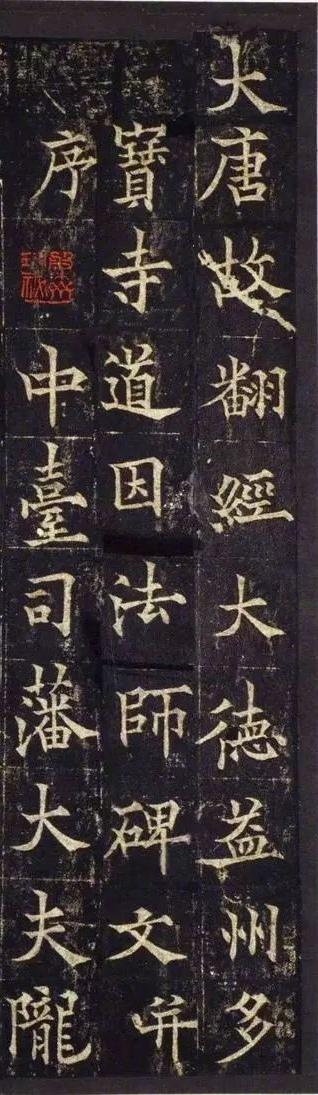 大唐故翻經大德益州多
寶寺道因法師碑文并
序中臺司藩大夫隴